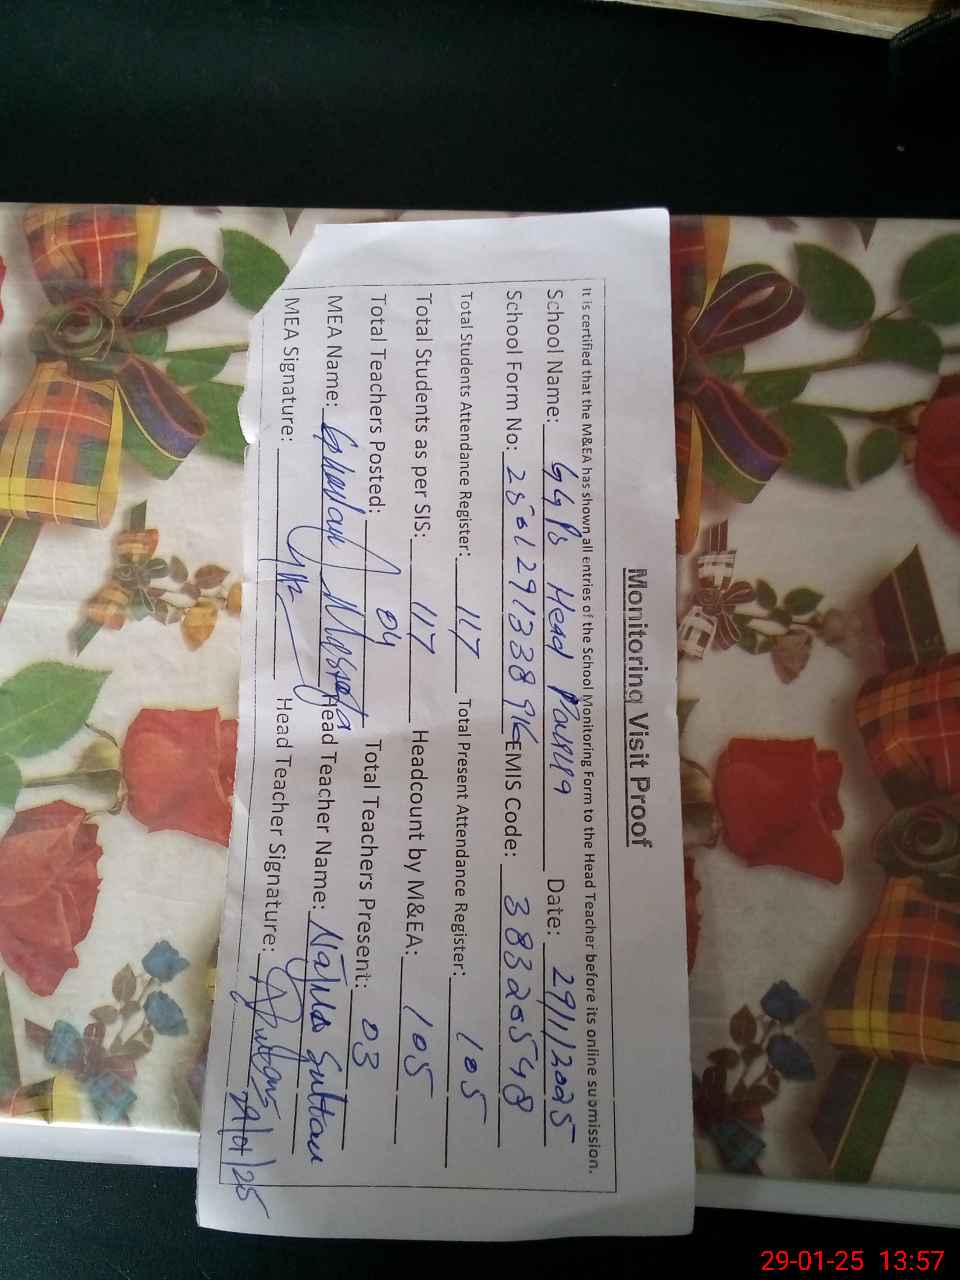 Monitoring Visit Proof
It is certified that the M&EA has shown all entries of the School Monitoring Form to the Head Teacher before its online submission.
School Name: GGPS Head Date: 29/1/2025
School Form No: EMIS Code: 38320548
Total Students Attendance Register: 117 Total Present Attendance Register: 105
Total Students as per SIS: 117 Headcount by M&EA: 105
Total Teachers Posted: 04 Total Teachers Present: 03
MEA Name: Ghulam Mustafa Head Teacher Name: Najma Sultan
MEA Signature: Head Teacher Signature:
29-01-25 13:57